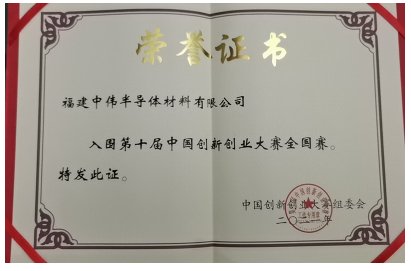 荣誉证书
福建中伟半导体材料有限公司
入围第十届中国创新创业大赛全国赛。
特发此证。
中国创新创业大赛组委会